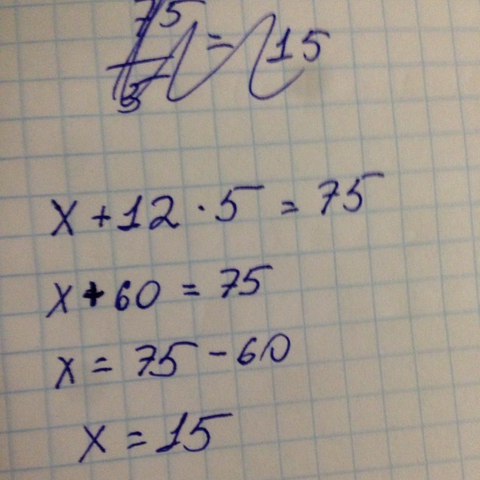 75
= 15
5
x + 12 · 5 = 75
x + 60 = 75
x = 75 - 60
x = 15